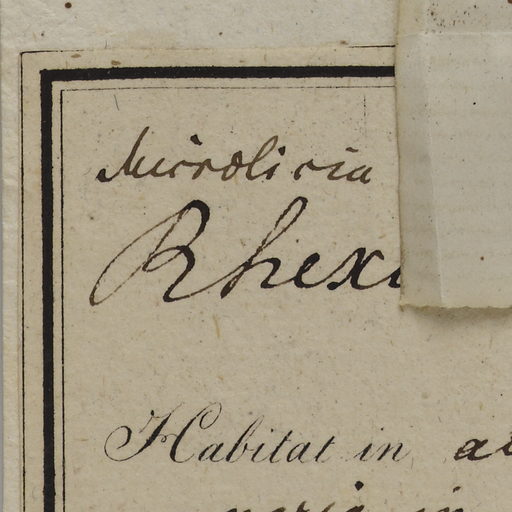 Microlicia
Rhexi
Habitat in